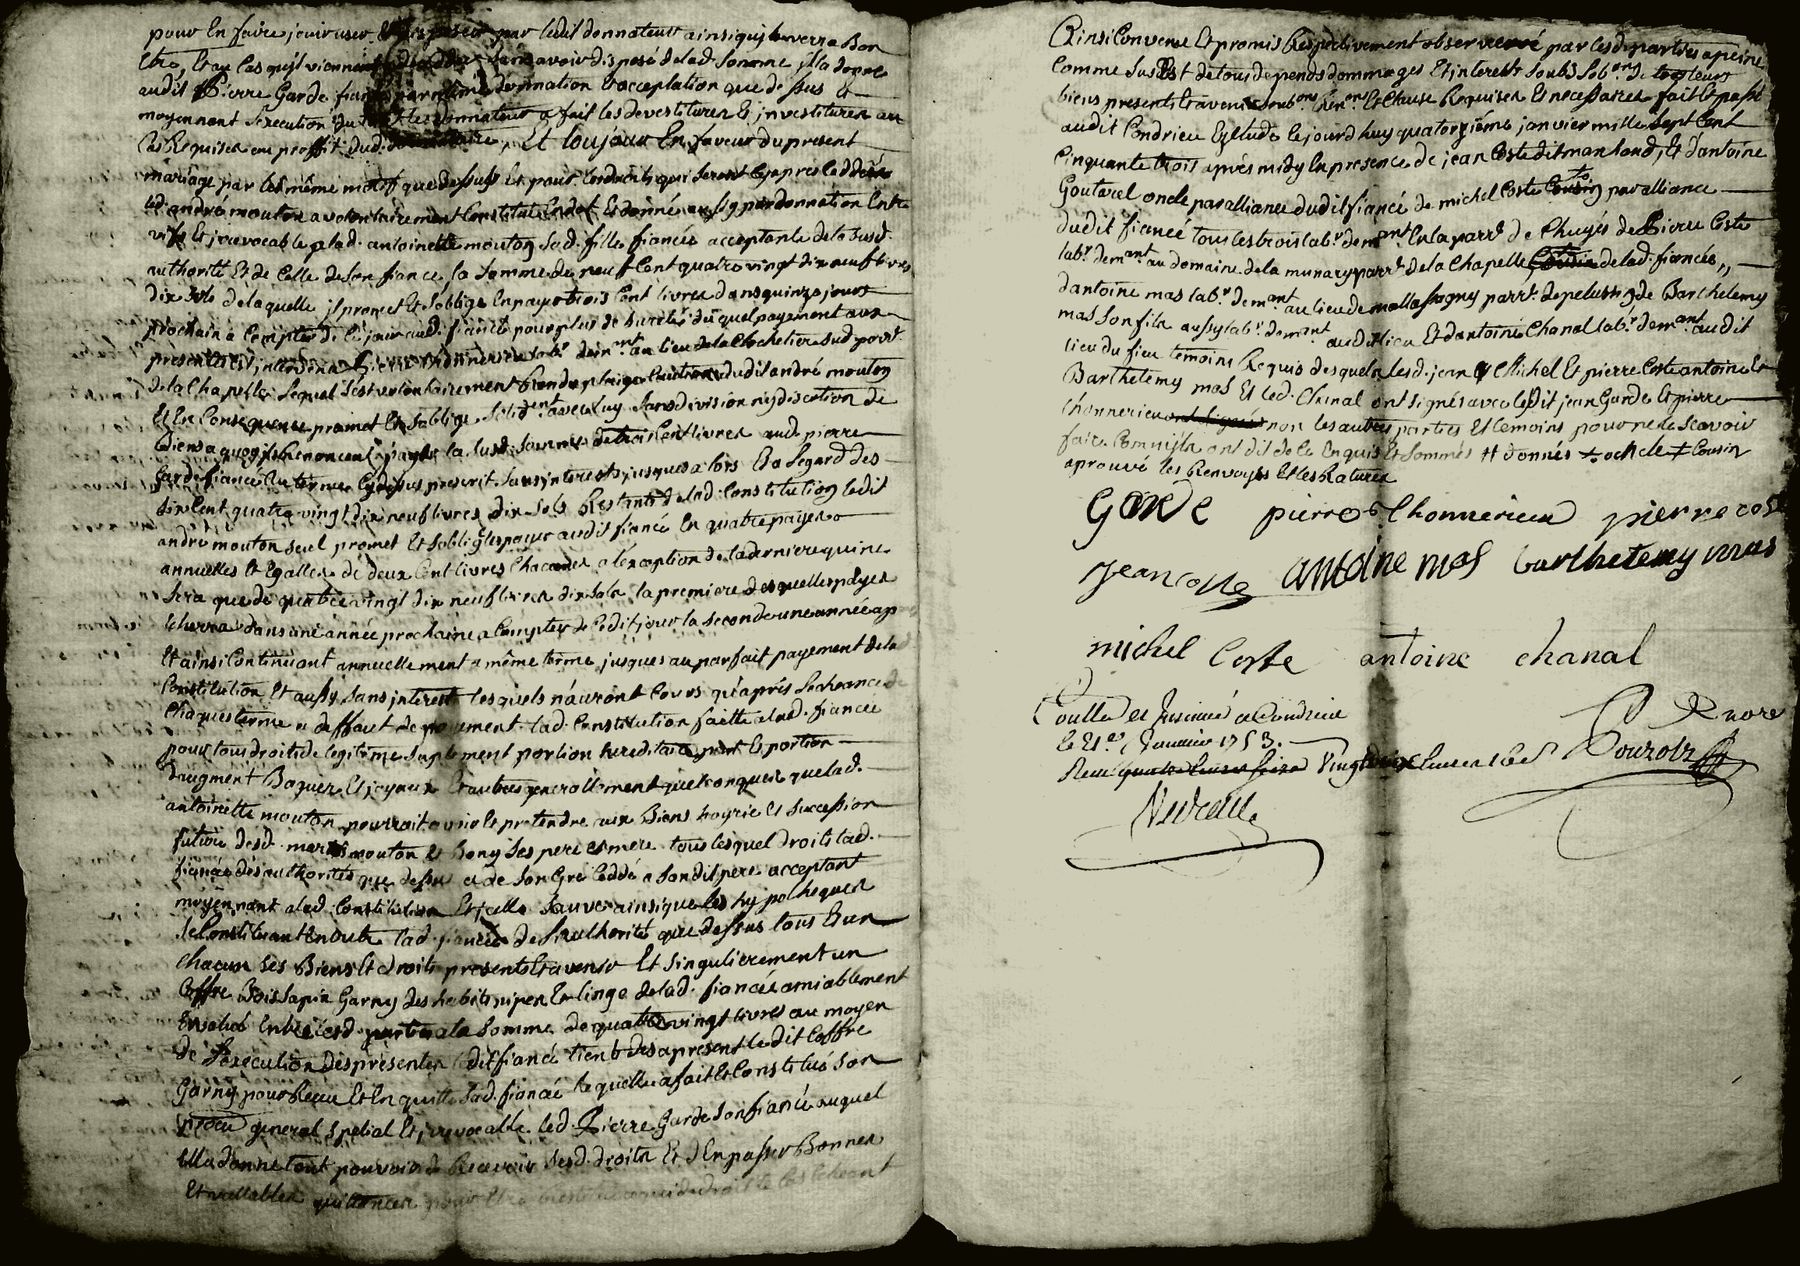 pour En faire jouir user Et disposer par ledit donnateur ainsi quil verra Bon
Etre, Et au Cas quil viennent a decedder sans avoir disposé de lad. somme jlla donne
audit Pierre Garde fiancé par même donnation Et acceptation que dessus Et
moyennant l'execution du donnateur a fait les devestitures Et jnvestitures au
Cas Requises au proffit dud. donnataire, Et toujour En faveur du present
mariage par les même motif que dessus Et pour les droits qui seront Cy apres Ceddés
led. andré mouton a volontairement Constitué Et donné aussy par donnation Entre
vifs Et jrrevocable a lad. antoinette mouton sad. fille fiancée acceptante de la susd.
authorité Et de Celle de son fiancé, la somme de neuf Cent quatre vingt dix neuf livres
dix sols de laquelle jl promet Et soblige En payer trois Cent livres dans quinze jours
prochain a Compter de Ce jour aud. fiancé pour plus de sureté duquel payement aux
presentes Est jntervenu Pierre thonnerieu lab.r dem.nt au lieu de la Clochetiere sud. parr.
de la Chapelle lequel s'est volontairement Rendu pleige Caution dudit andré mouton
Et En Consequence promet Et soblige solid.ent avec luy sans division ny discution de
Biens a quoy jls Renoncent payer la susd. somme de trois Cent livres aud. pierre
Garde fiancé au terme Cy dessus prescrit sans jnterests jusques a lors Et a l'egard des
six Cent quatre vingt dix neuf livres dix sols Restants de lad. Constitution ledit
andré mouton seul promet Et soblige les payer audit fiancé En quatre payes
annuelles Et Egalles de deux Cent livres Chacunes a l'exception de la derniere qui ne
sera que de quatre vingt dix neuf livres dix sols la premiere desquelles payes
Echerra dans une année prochaine a Compter de Ce dit jour la seconde une année ap
Et ainsi Continuant annuellement a même terme jusques au parfait payement de la
Constitution Et aussy sans jnterest lesquels n'auront Cours qu'aprés l'echeance de
Chaques terme a deffaut de payement. lad. Constitution faitte a lad. fiancée
pour tous droits de legitime suplement portion hereditaire part Et portion
d'augment Bagues Et joyaux Et autres generallement quelconques que lad.
antoinette mouton pourroit avoir Et pretendre aux Biens hoyrie Et succession
future desd. mariés mouton Et Bony ses pere Et mere tous lesquel droits lad.
fiancée des authorités que dessus a de son Gré Ceddé a sondit pere acceptant
moyennant a lad. Constitution Et jcelle sauve ainsi que les hypotheques
se Constituant En outre lad. fiancée de l'authorité que dessus tous Et un
chacun ses Biens Et droits presents Et avenir Et singulierement un
Coffre Bois sapin Garny des habits nipes Et linge de lad. fiancée amiablement
Evalué Entre lesd. parties a la somme de quatre vingt livres au moyen
de l'execution des presentes ledit fiancé tient des a present le dit Coffre
Garny pour Receu Et En quitte lad. fiancée laquelle a fait Et Constitué son
procu general spetial Et jrrevocable led. Pierre Garde son fiancé auquel
Ella donne tout pouvoir de Recevoir sesd. droits Et d'En passer Bonnes
Et vallables quittances pour Etre Restitué a qui de droit le Cas Echeant
Ainsi Convenu Et promis Respectivement observer par lesd. parties a peine
Comme sus Est de tous depends dommages Et jnterests soubs lob.on de tous leurs
biens presents Et avenir soub.ons Ren.ons Et Clause Requises Et necessaires fait Et passé
audit Condrieu Etude le jourd huy quatorzième janvier mille sept Cent
Cinquante trois aprés midy En presence de jean Coste dit manhand, Et d'antoine
Goutarel oncle par alliance dudit fiancé de michel Coste Cousin par alliance
dudit fiancé tous les trois lab.r dem.ant En la parr. de Chuyés de Pierre Coste
lab.r dem.ant au domaine de la munary parr. de la Chapelle Cousin de lad. fiancée,,
d'antoine mas lab.r dem.ant au lieu de mallassagny parr. de pelussin de Barthelemy
mas son fils aussy lab.r dem.ant aud. lieu Et d'antoine Chanal lab.r dem.ant audit
lieu du fieu temoins Requis desquels lesd. jean Michel Et pierre Coste antoine Et
Barthelemy mas Et led. Chanal ont signés avec ledit jean Garde Et pierre
thonnerieu ont signés non les autres parties Et temoins pour ne le scavoir
faire Comm' jls ont dit de Ce Enquis Et sommés ++ donnés + oncle + Cousin
aprouvé les Renvoyes Et les Ratures
Garde pierre thonnerieu pierre coste
jean coste antoine mas barthelemy mas
michel Coste antoine chanal
Conttrollé Et Jnsinué a Condrieu
le 21.e Janvier 1753.
Receu quatre livres seize vingt livres